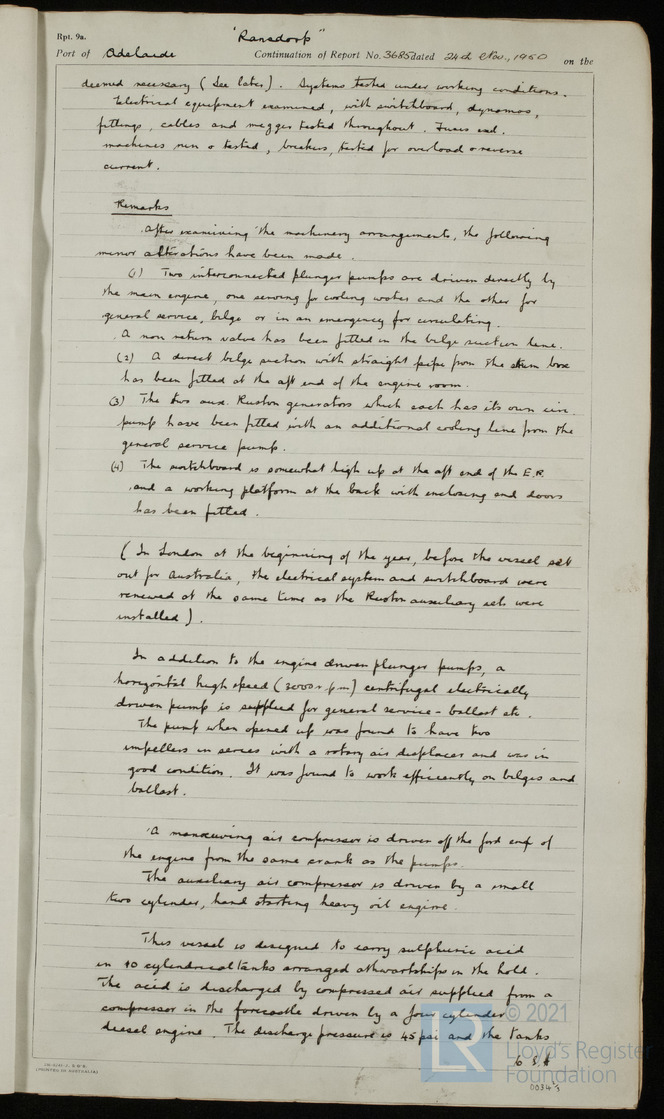 Rpt. 9a.
"Ransdorp"
Port of Adelaide Continuation of Report No. 3685 dated 24th Nov., 1950 on the
deemed necessary (See later). Systems tested under working conditions.
Electrical equipment examined, with switchboard, dynamos,
fittings, cables and megger tested throughout.
machines run & tested, breakers, tested for overload & reverse
current.
Remarks
After examining the machinery arrangements, the following
minor alterations have been made.
(1) Two interconnected plunger pumps are driven directly by
the main engine, one serving for cooling water and the other for
general service, bilge or in an emergency for circulating.
A non return valve has been fitted in the bilge suction line.
(2) A direct bilge suction with straight pipe from the strum box
has been fitted at the aft end of the engine room.
(3) The two aux. Ruston generators which each has its own circ.
pump have been fitted with an additional cooling line from the
general service pump.
(4) The switchboard is somewhat high up at the aft end of the E.R.
and a working platform at the back with enclosing end doors
has been fitted.
(In London at the beginning of the year, before the vessel set
out for Australia, the electrical system and switchboard were
renewed at the same time as the Ruston auxiliary sets were
installed).
In addition to the engine driven plunger pumps, a
horizontal high speed (3000 r.p.m) centrifugal electrically
driven pump is supplied for general service - ballast etc.
The pump when opened up was found to have two
impellers in series with a rotary air displacer and was in
good condition. It was found to work efficiently on bilges and
ballast.
A manoeuving air compressor is driven off the ford end of
the engine from the same crank as the pumps.
The auxiliary air compressor is driven by a small
two cylinder, hand starting heavy oil engine.
This vessel is designed to carry sulphuric acid
in 10 cylindrical tanks arranged athwartships in the hold.
The acid is discharged by compressed air supplied from a
compressor in the forecastle driven by a four cylinder
diesel engine. The discharge pressure is 45 psi and the tanks
LR © 2021
Lloyd's Register
Foundation